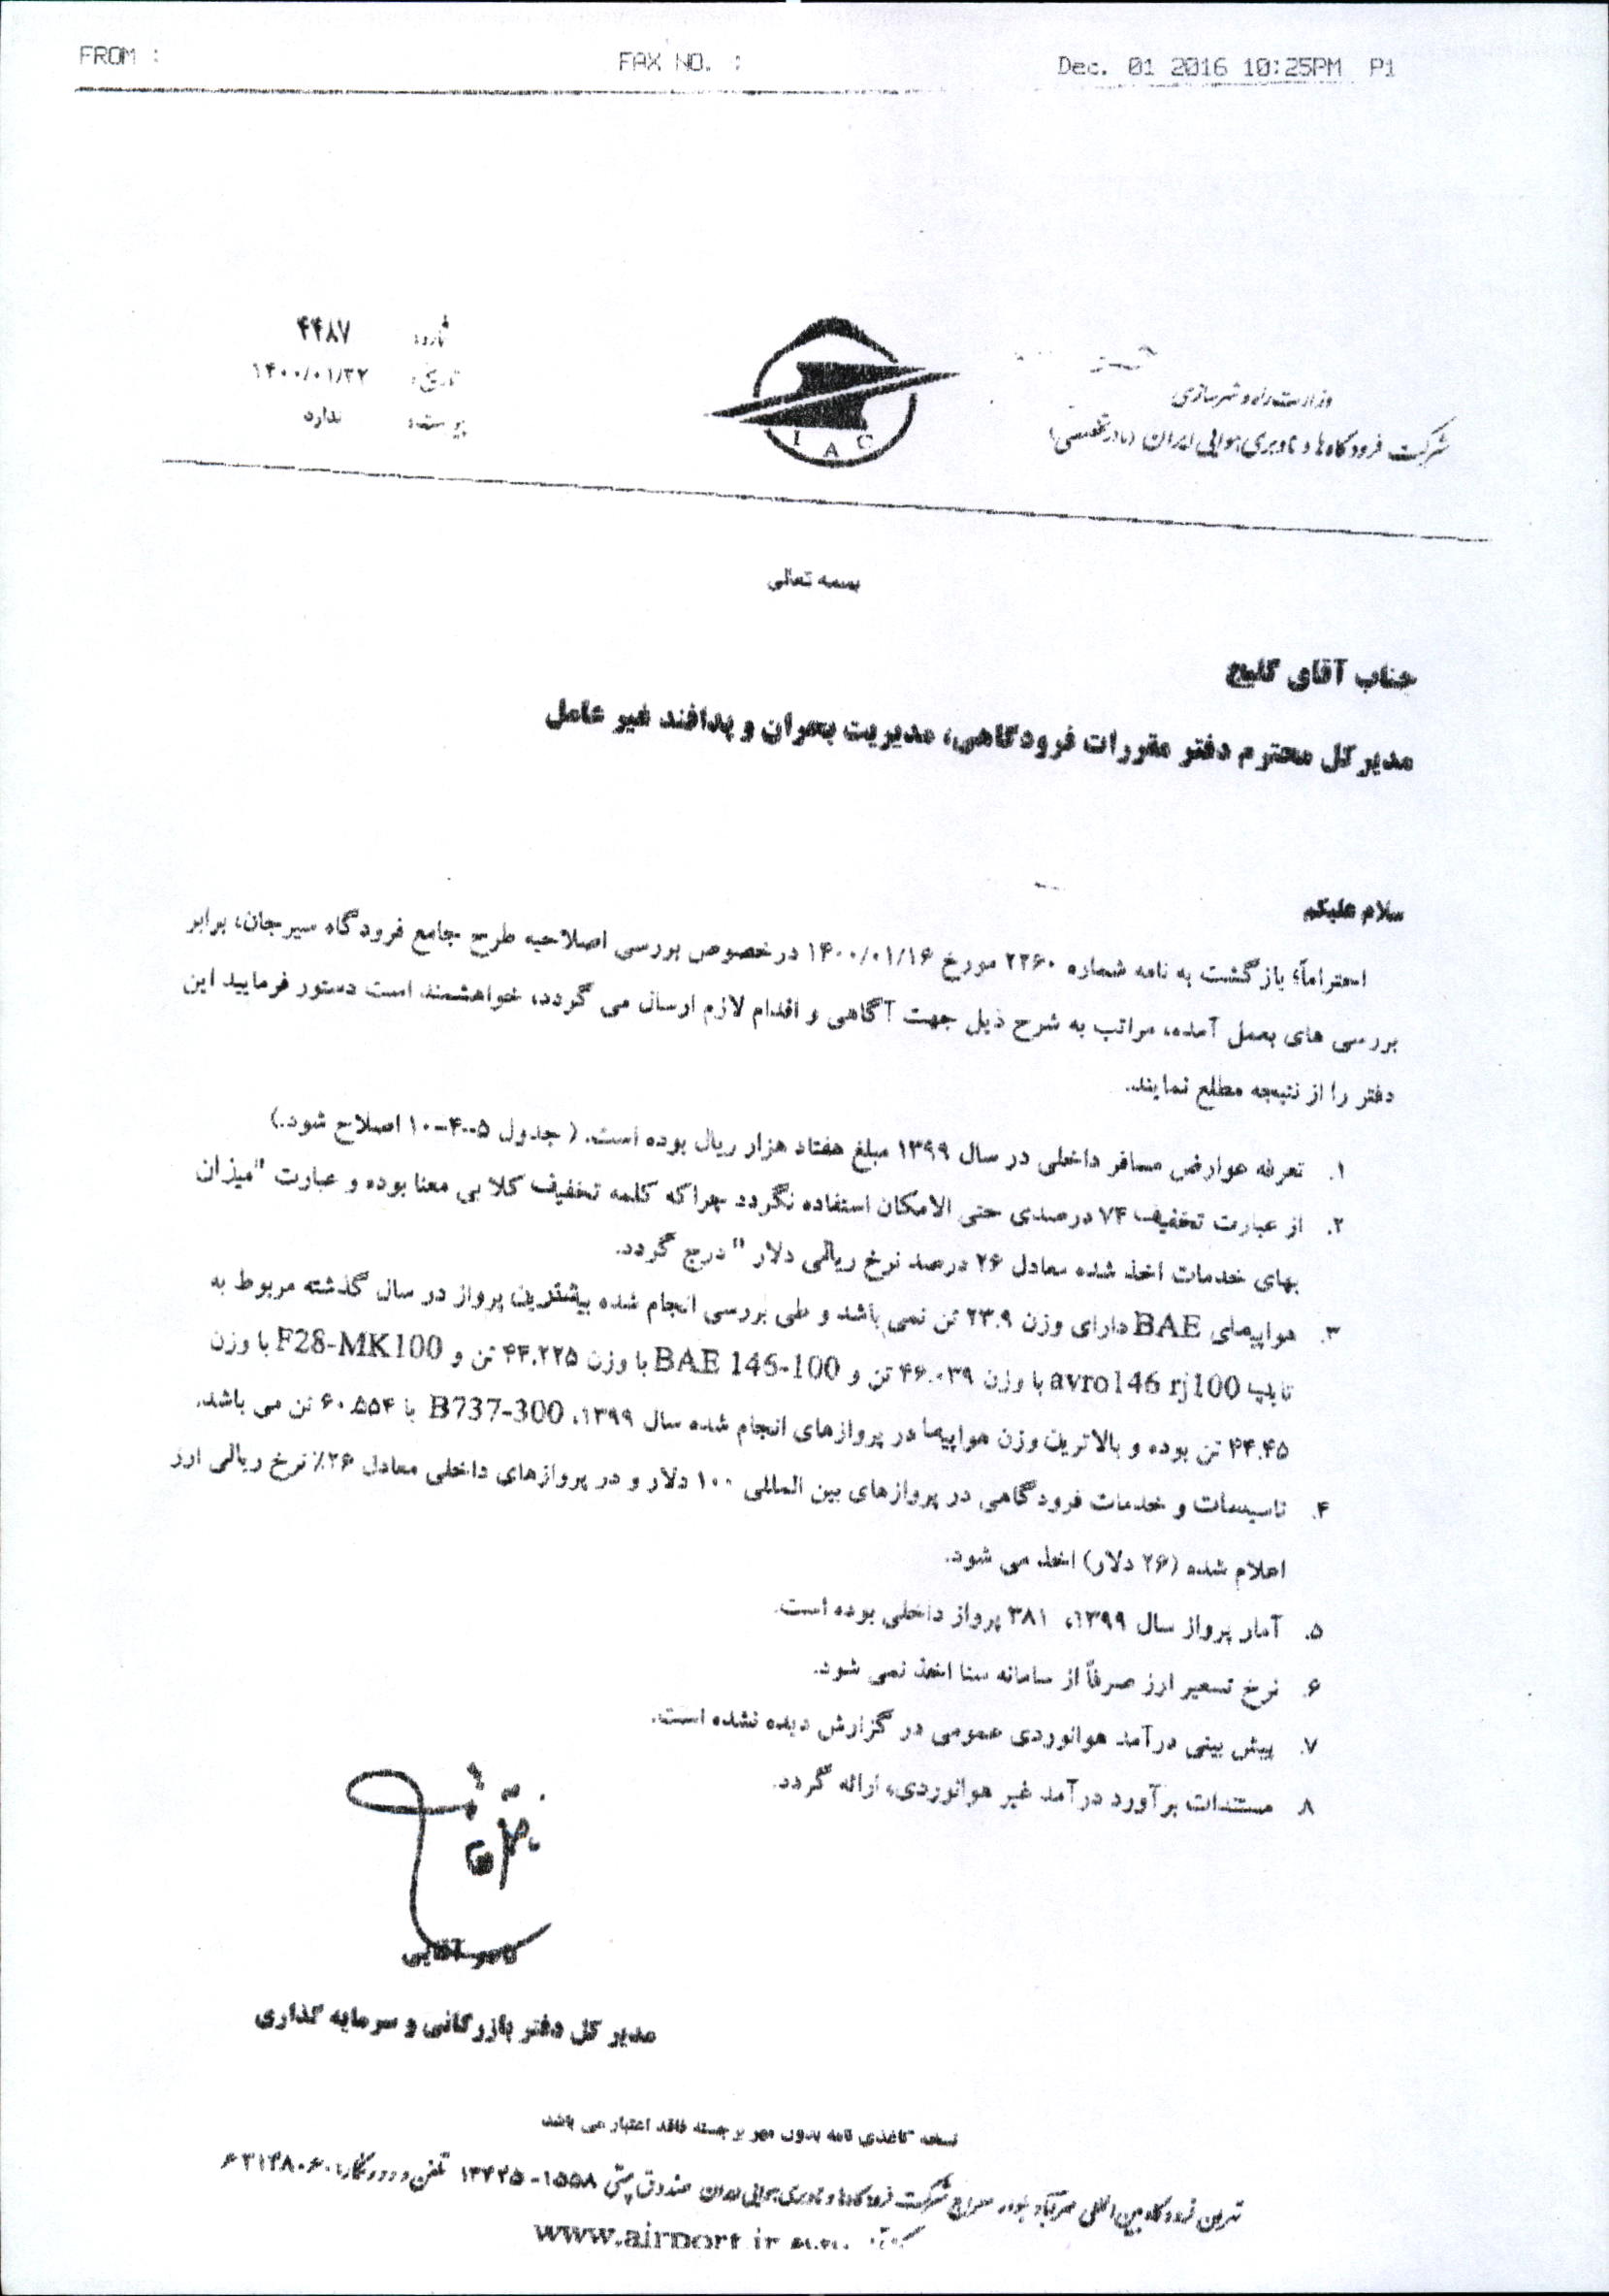 FROM :
FAX NO. :
Dec. 01 2016 10:25PM P1
شماره: ۴۴۸۷
تاریخ: ۱۴۰۰/۰۱/۲۲
پیوست: ندارد
I A C
وزارت راه و شهرسازی
شرکت فرودگاه‌ها و ناوبری هوایی ایران (مادر تخصصی)
بسمه تعالی
جناب آقای گلیج
مدیر کل محترم دفتر مقررات فرودگاهی، مدیریت بحران و پدافند غیر عامل
سلام علیکم
احتراماً؛ بازگشت به نامه شماره ۲۲۶۰ مورخ ۱۴۰۰/۰۱/۱۶ درخصوص بررسی اصلاحیه طرح جامع فرودگاه سیرجان، برابر
بررسی های بعمل آمده، مراتب به شرح ذیل جهت آگاهی و اقدام لازم ارسال می گردد، خواهشمند است دستور فرمایید این
دفتر را از نتیجه مطلع نمایند.
۱. تعرفه عوارض مسافر داخلی در سال ۱۳۹۹ مبلغ هفتاد هزار ریال بوده است. ( جدول ۵-۴-۱۰ اصلاح شود.)
۲. از عبارت تخفیف ۷۴ درصدی حتی الامکان استفاده نگردد چراکه کلمه تخفیف کلا بی معنا بوده و عبارت "میزان
بهای خدمات اخذ شده معادل ۲۶ درصد نرخ ریالی دلار" درج گردد.
۳. هواپیمای BAE دارای وزن ۲۳.۹ تن نمی باشد و طی بررسی انجام شده بیشترین پرواز در سال گذشته مربوط به
تایپ avro146 rj100 با وزن ۴۶.۰۳۹ تن و BAE 146-100 با وزن ۴۴.۲۲۵ تن و F28-MK100 با وزن
۴۴.۴۵ تن بوده و بالاترین وزن هواپیما در پروازهای انجام شده سال ۱۳۹۹، B737-300 با ۶۰.۵۵۴ تن می باشد.
۴. تاسیسات و خدمات فرودگاهی در پروازهای بین المللی ۱۰۰ دلار و در پروازهای داخلی معادل ۲۶٪ نرخ ریالی ارز
اعلام شده (۲۶ دلار) اخذ می شود.
۵. آمار پرواز سال ۱۳۹۹، ۳۸۱ پرواز داخلی بوده است.
۶. نرخ تسعیر ارز صرفاً از سامانه سنا اخذ نمی شود.
۷. پیش بینی درآمد هوانوردی عمومی در گزارش دیده نشده است.
۸. مستندات برآورد درآمد غیر هوانوردی، ارائه گردد.
آقایی
مدیر کل دفتر بازرگانی و سرمایه گذاری
نسخه کاغذی نامه بدون مهر برجسته فاقد اعتبار می باشد
فرودگاه بین المللی مهرآباد بلوار معراج شرکت فرودگاه‌ها و ناوبری هوایی ایران صندوق پستی ۱۵۵۸-۱۳۴۴۵ تلفن و دورنگار: ۶۳۱۴۸۰۶۰
www.airport.ir